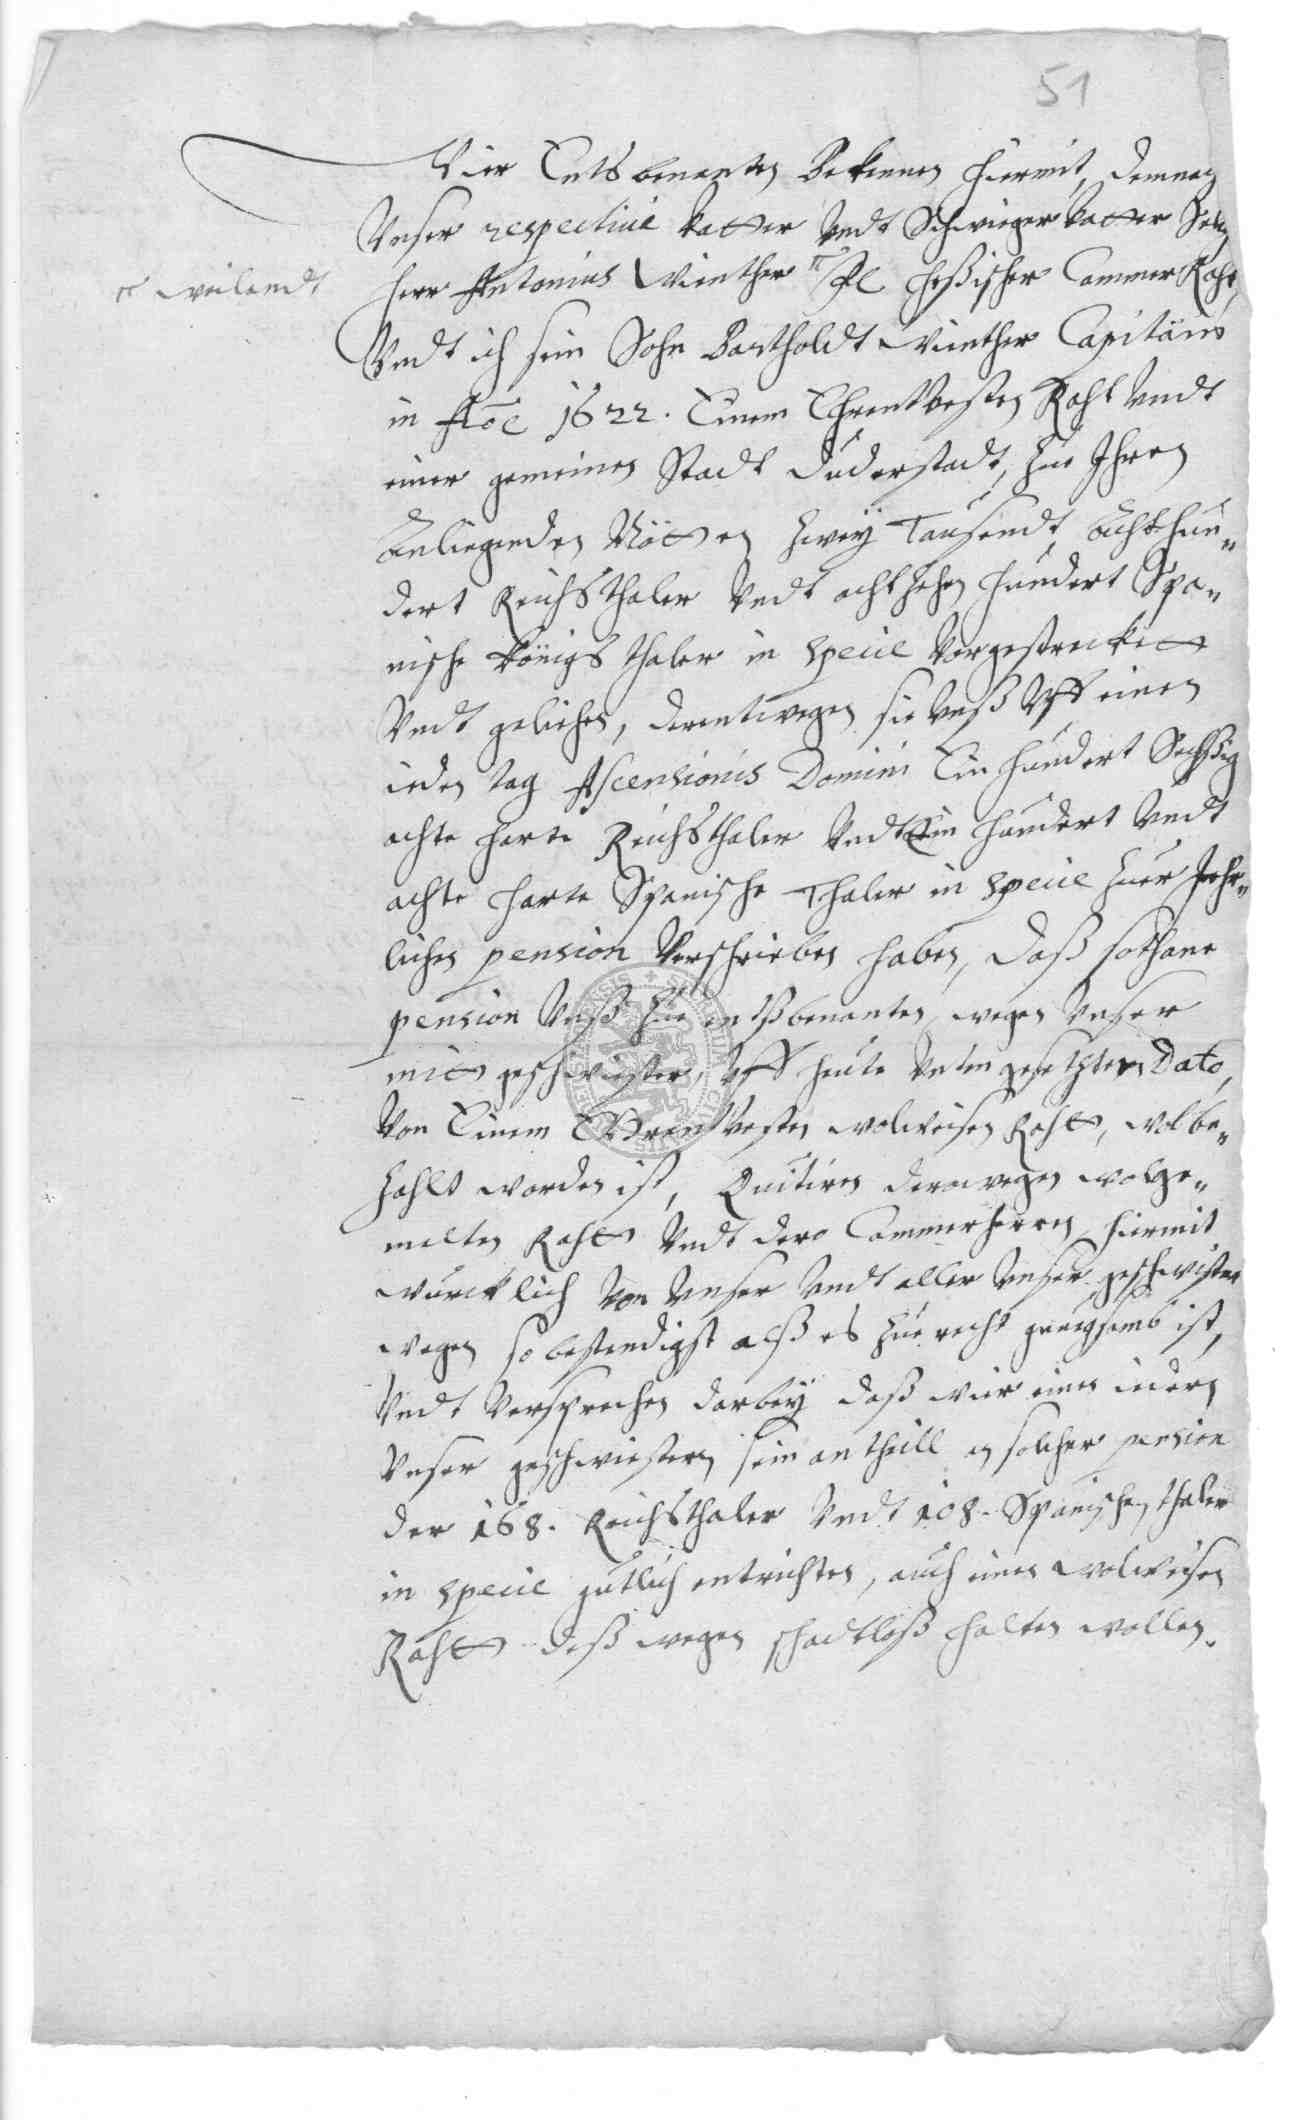 51
Wier Entsbenanten Bekennen hiermit, demnach
Unser respective Vatter Undt Schwieger Vatter Sel.
Herr Antonius Winther Fl Heßischer Cammer Raht,
weilandt
Undt ich sein Sohn Bartholdt Winther Capitäin
in Aoe 1622. Einem Ehrentvesten Raht Undt
einer gemeinen Stadt Duderstadt, zue Ihren
Anliegenden Nötten zweÿ Tausendt achthun„
dert Reichsthaler Undt achtzehen hundert Spa„
nische Königs thaler in specie Vorgestreckett
Undt geliehen, derentwegen sie Unß Uff einen
ieden tag Ascensionis Domini Ein hundert Sechßig
achte harte Reichsthaler Undt Ein hundert Undt
achte harte Spanische Thaler in specie zuer Jehr„
lichen pension Verschrieben haben, daß sothane
pension Unß zue entßbenanten, wegen Unser
mit geschwister, Uff heute Unten gesetzten Dato,
Von Einem Ehrentvesten wolweisen Raht, wol be„
zahlt worden ist, Quitiren derowegen wolge„
melten Raht Undt dero Cammerherren hiermit
würcklich Von Unser Undt aller Unser geschwister
wegen so bestendigst alß es zue recht gnungsamb ist,
Undt Versprechen darbeÿ daß wier einen iedern
Unser geschwistern sein antheill an solcher pension
der 168. Reichsthaler Undt 108. Spanischen thaler
in specie gütlich entrichten, auch einen wolweisen
Raht deß wegen schadtloß halten wollen.